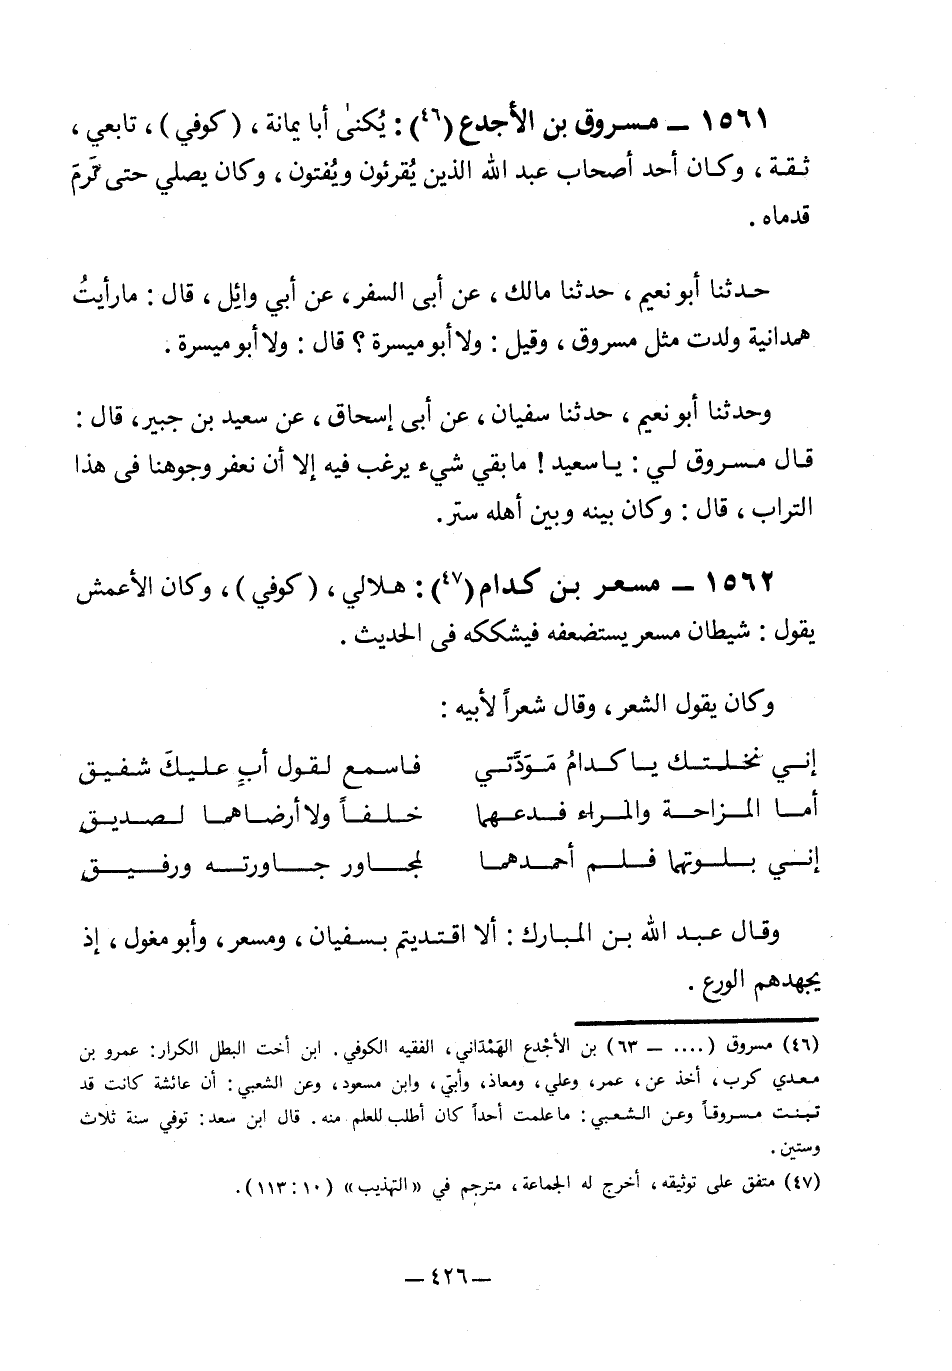 ١٥٦١ ـ مسروق بن الأجدع (٤٦) : يُكنىٰ أبا يمانة ، ( كوفي ) ، تابعي ،
ثقة ، وكان أحد أصحاب عبد الله الذين يُقرئون ويُفتون ، وكان يصلي حتى تَرِمَ
قدماه .
حدثنا أبو نعيم ، حدثنا مالك ، عن أبى السفر ، عن أبي وائِل ، قال : مارأيتُ
همدانية ولدت مثل مسروق ، وقيل : ولا أبو ميسرة ؟ قال : ولا أبو ميسرة .
وحدثنا أبو نعيم ، حدثنا سفيان ، عن أبى إسحاق ، عن سعيد بن جبير ، قال :
قال مسروق لي : ياسعيد ! مابقي شيء يرغب فيه إلا أن نعفر وجوهنا فى هذا
التراب ، قال : وكان بينه وبين أهله ستر .
١٥٦٢ ـ مسعر بن كدام (٤٧) : هلالي ، ( كوفي ) ، وكان الأعمش
يقول : شيطان مسعر يستضعفه فيشككه فى الحديث .
وكان يقول الشعر ، وقال شعراً لأبيه :
إني نخلتك ياكدامُ مَوَدَّتي فاسمع لقول أبٍ عليكَ شفيق
أما المزاحة والمراء فدعها خلفاً ولا أرضاهما لصديق
إني بلوتها فلم أحمدهما لمجاور جاورته ورفيق
وقال عبد الله بن المبارك : ألا اقتديتم بسفيان ، ومسعر ، وأبو مغول ، إذ
يجهدهم الورع .
(٤٦) مسروق ( .... ـ ٦٣) بن الأجْدع الهَمْدَاني، الفقيه الكوفي. ابن أخت البطل الكرار: عمرو بن
معدي كرب، أخذ عن، عمر، وعلي، ومعاذ، وأبيّ، وابن مسعود، وعن الشعبي: أن عائشة كانت قد
تبنت مسروقاً وعن الشعبي: ماعلمت أحداً كان أطلب للعلم منه. قال ابن سعد: توفي سنة ثلاث
وستين.
(٤٧) متفق على توثيقه، أخرج له الجماعة، مترجم في «التهذيب» (١٠: ١١٣).
ـ ٤٢٦ ـ